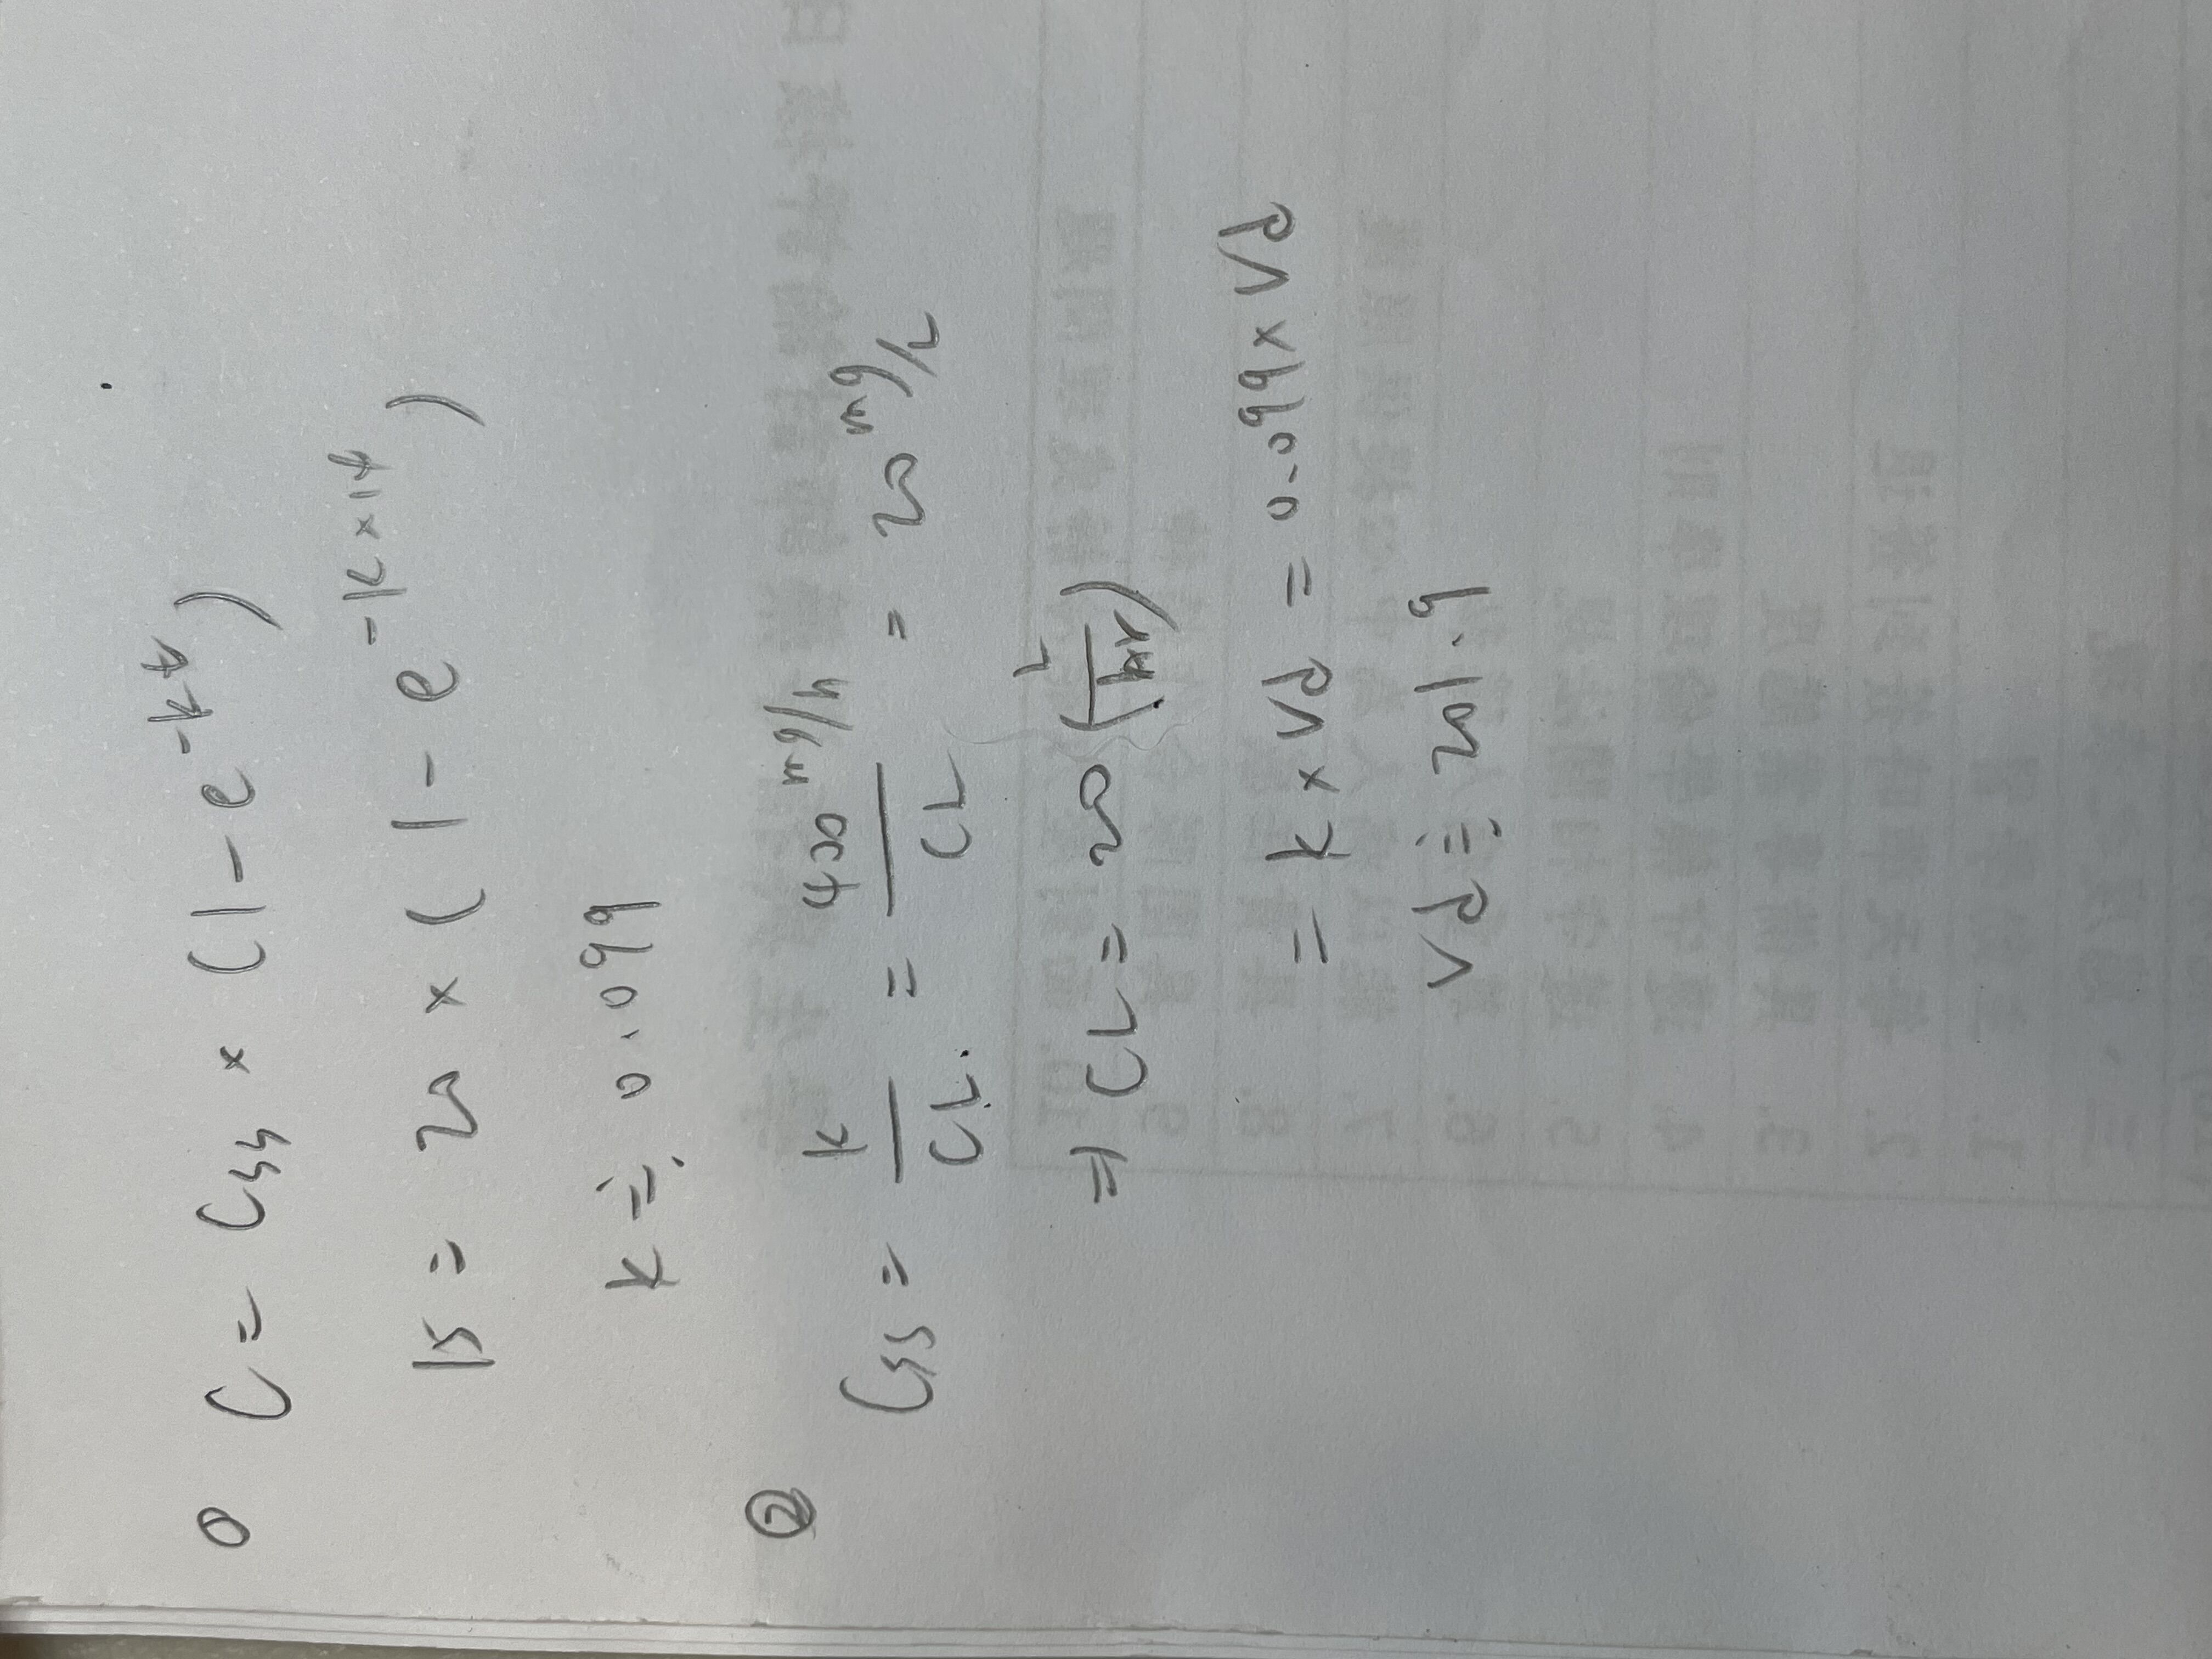 ① C = Css × (1 - e^-kt)
15 = 20 × (1 - e^-k×14)
k ≒ 0.099
② Css = k/CL = 400 mg/h / CL = 20 mg/L
⇒ CL = 20 (L/hr)
= k × Vd = 0.099 × Vd
Vd ≒ 201.9